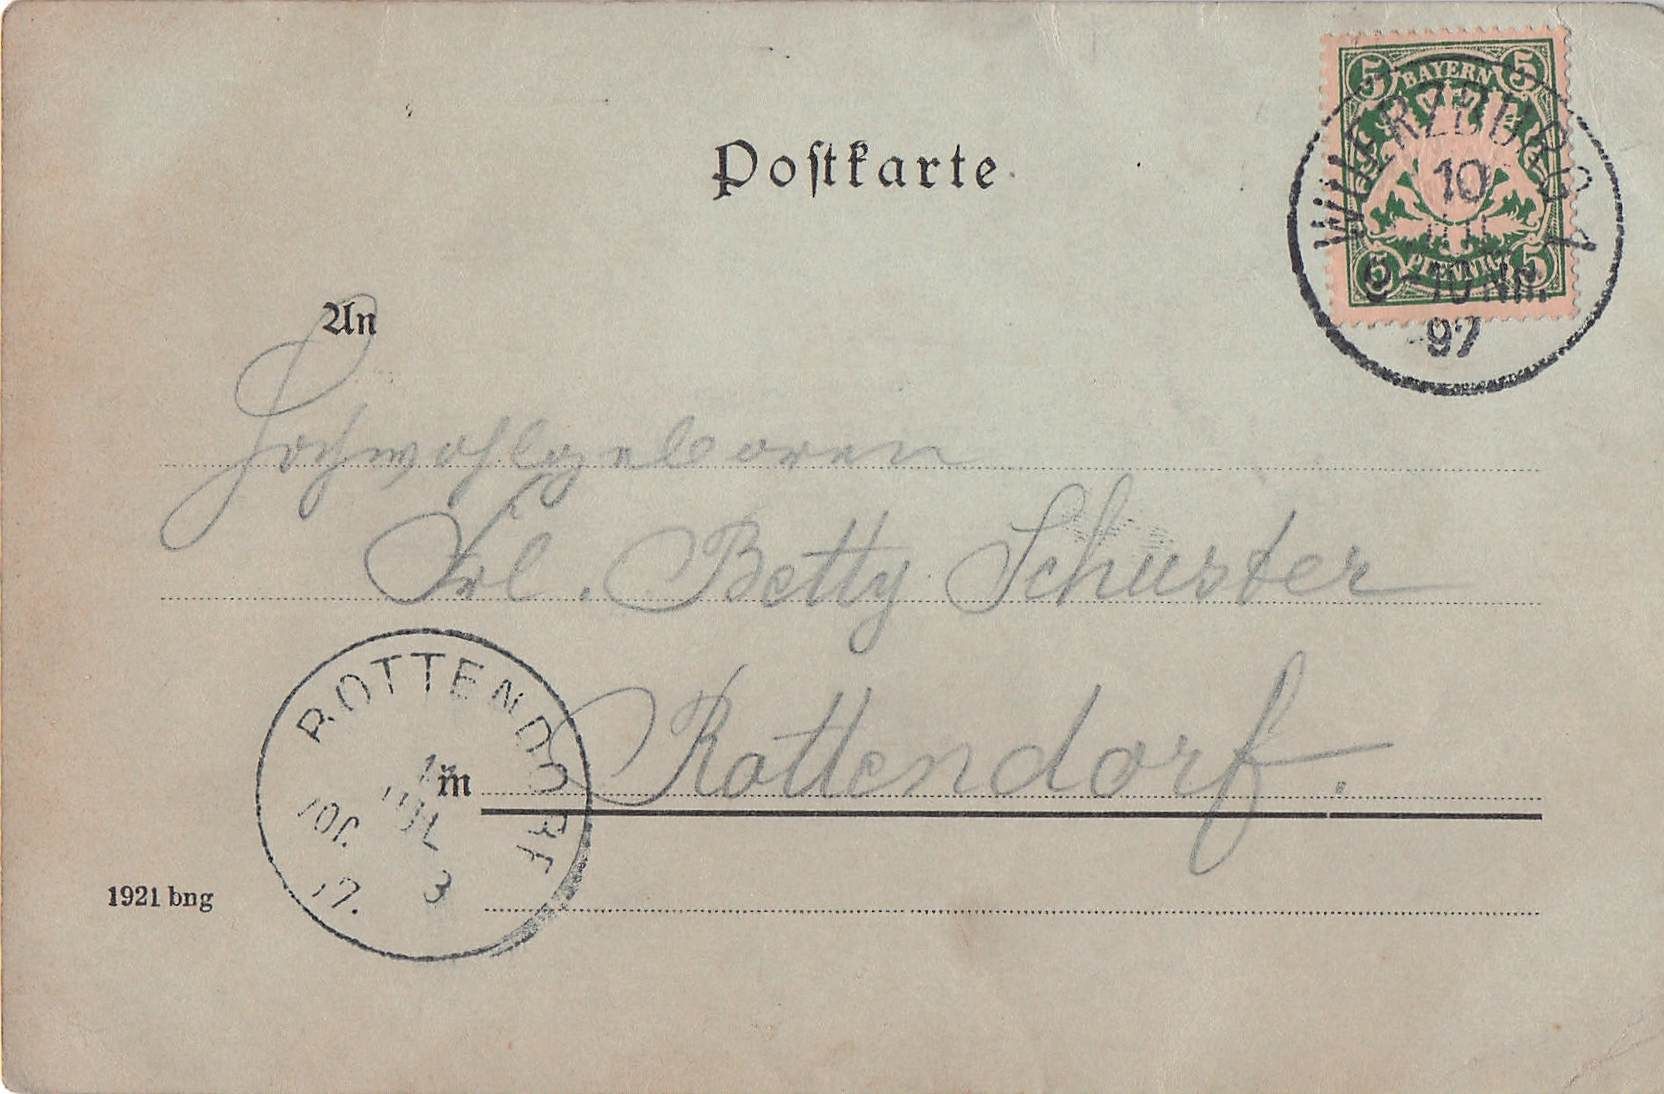 Postkarte
BAYERN
5 5
WUERZBURG 1
10
JUL
8-10 Nm.
97
PFENNIG
5 5
An
Hochwohlgeboren
Frl. Betty Schuster
Rottendorf.
in
ROTTENDORF
JUL
1921 bng